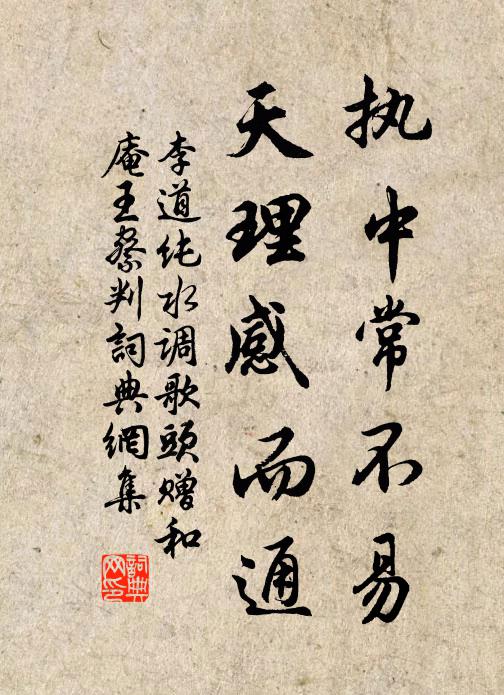 执中常不易
天理感而通
李道纯水调歌頭赠和
庵王察判詞典網集
詞典
网印